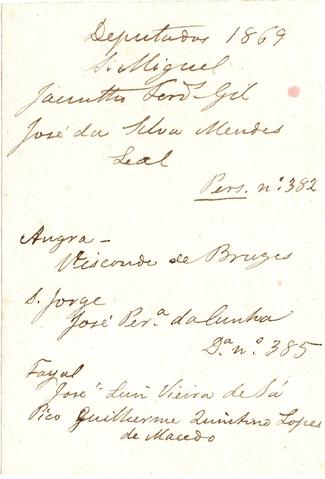 Deputados 1869
S. Miguel
Jacintho Ferd. Gil
José da Silva Mendes
Leal
Pers. n.º 382
Angra -
Visconde de Bruges
S. Jorge
José Per.ª da Cunha
D.ª n.º 385
Fayal
José Luiz Vieira de Sá
Pico Guilherme Quintino Lopes
de Macedo